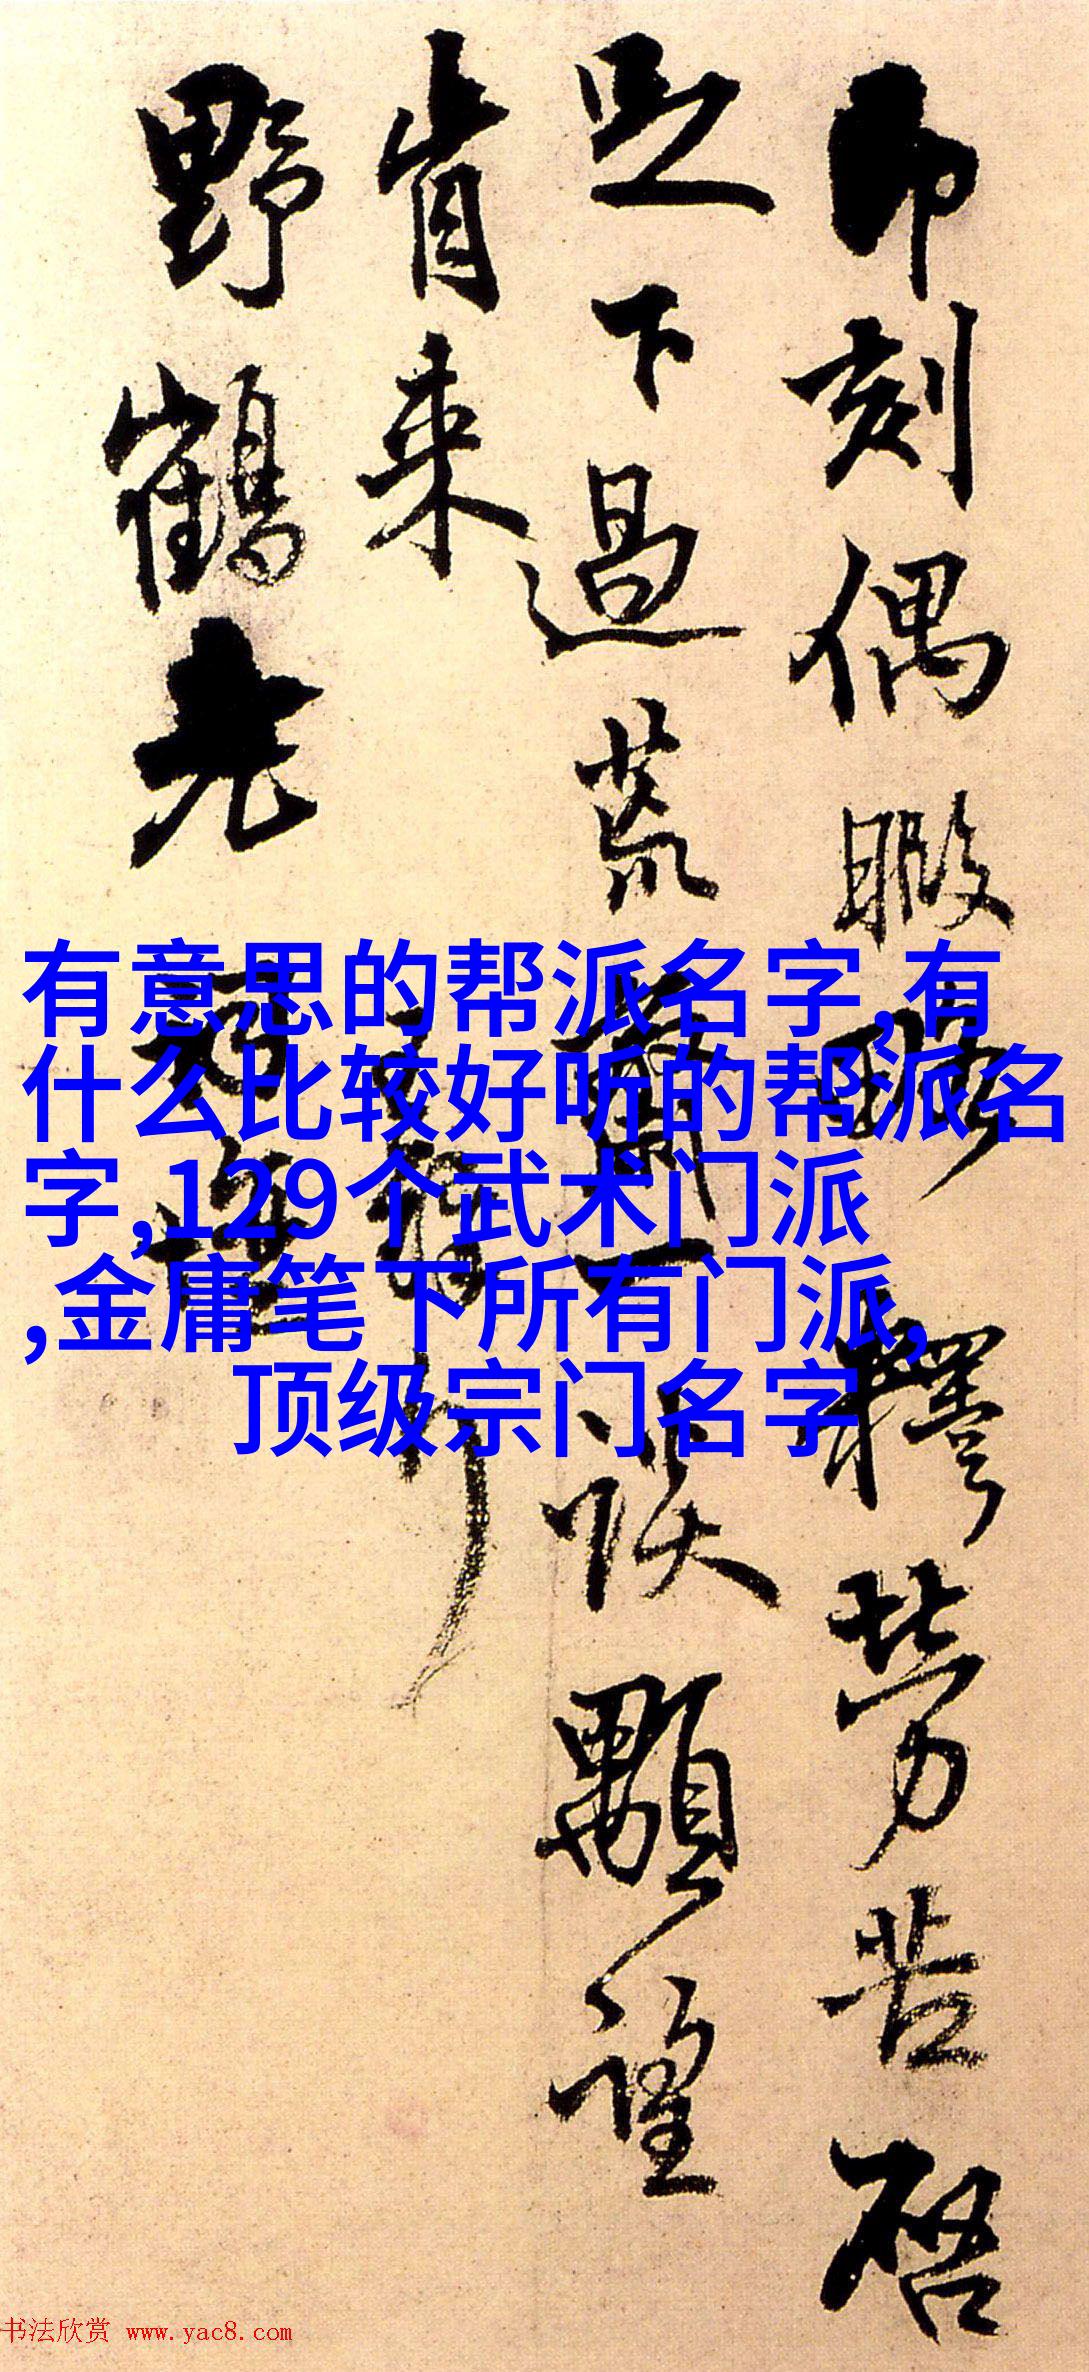 即刻偶暇略釋勞苦啓
足下過荒齋一談顒望
肯來
野鶴老
有意思的帮派名字,有
什么比较好听的帮派名
字,129个武术门派
,金庸笔下所有门派,
顶级宗门名字
书法欣赏 www.yac8.com